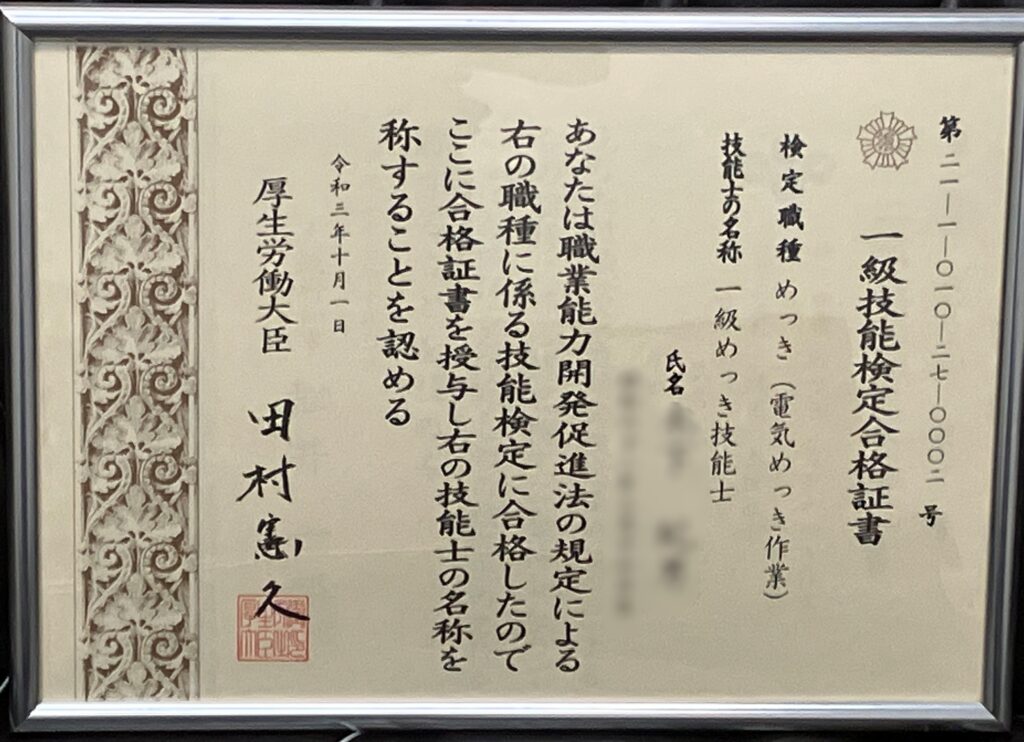 第二一―一―〇一〇―二七―〇〇〇二号
一級技能検定合格証書
検定職種 めっき(電気めっき作業)
技能士の名称 一級めっき技能士
氏名
あなたは職業能力開発促進法の規定による
右の職種に係る技能検定に合格したので
ここに合格証書を授与し右の技能士の名称を
称することを認める
令和三年十月一日
厚生労働大臣 田村憲久